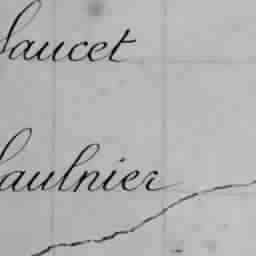 Saucet
Saulnier